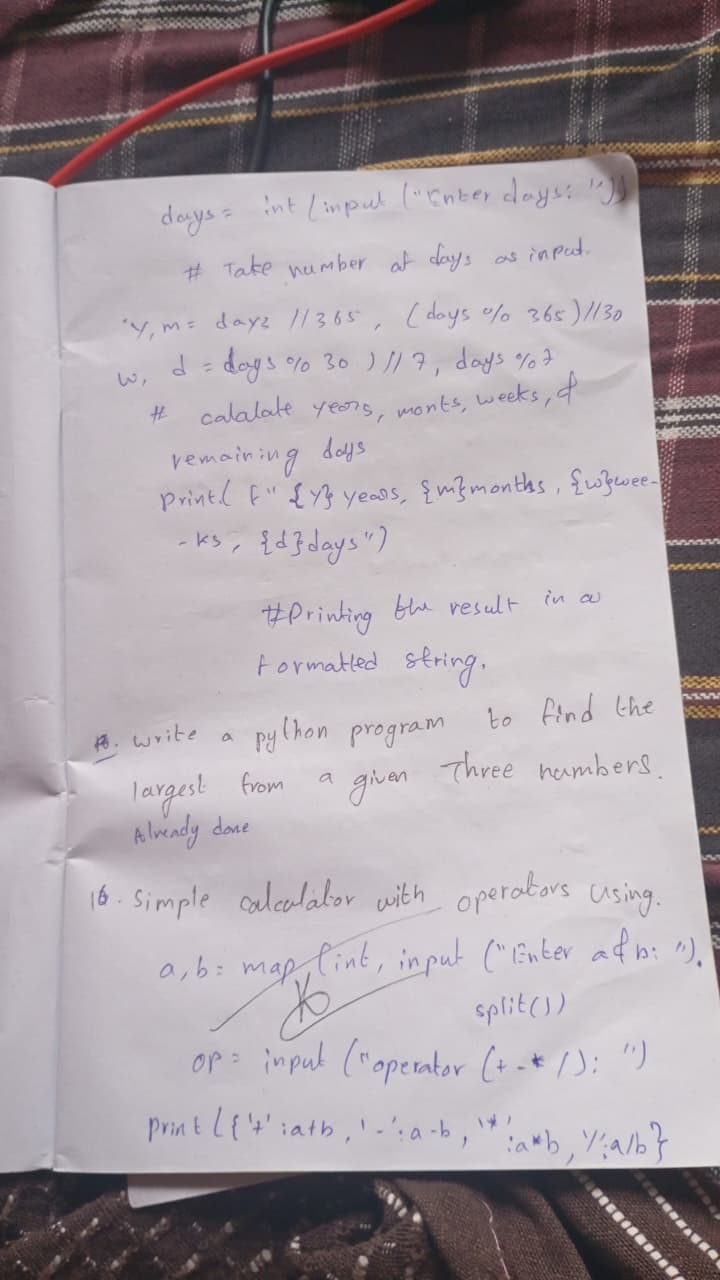 days = int (input ("Enter days: "))
# Take number of days as input.
y, m = days //365, (days % 365)//30
w, d = days % 30 ) // 7, days % 7
# calalate years, monts, weeks, &
remaining days
print( f" {y} years, {m}months, {w}wee-
-ks, {d}days")
#Printing the result in a
Formatted string.
write a python program to find the
largest from a given Three numbers.
Already done
16. Simple calculator with operators using.
a, b = map (int, input ("Enter a & b: ").
split())
op = input ("operator (+ - * /): ")
print ({'+' : a+b, '-' : a-b, '*' : a*b, '/' : a/b}